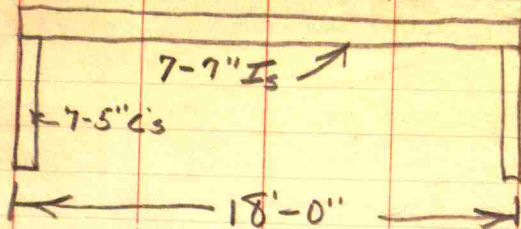 7-7" Is
7-5" C's
18'-0"